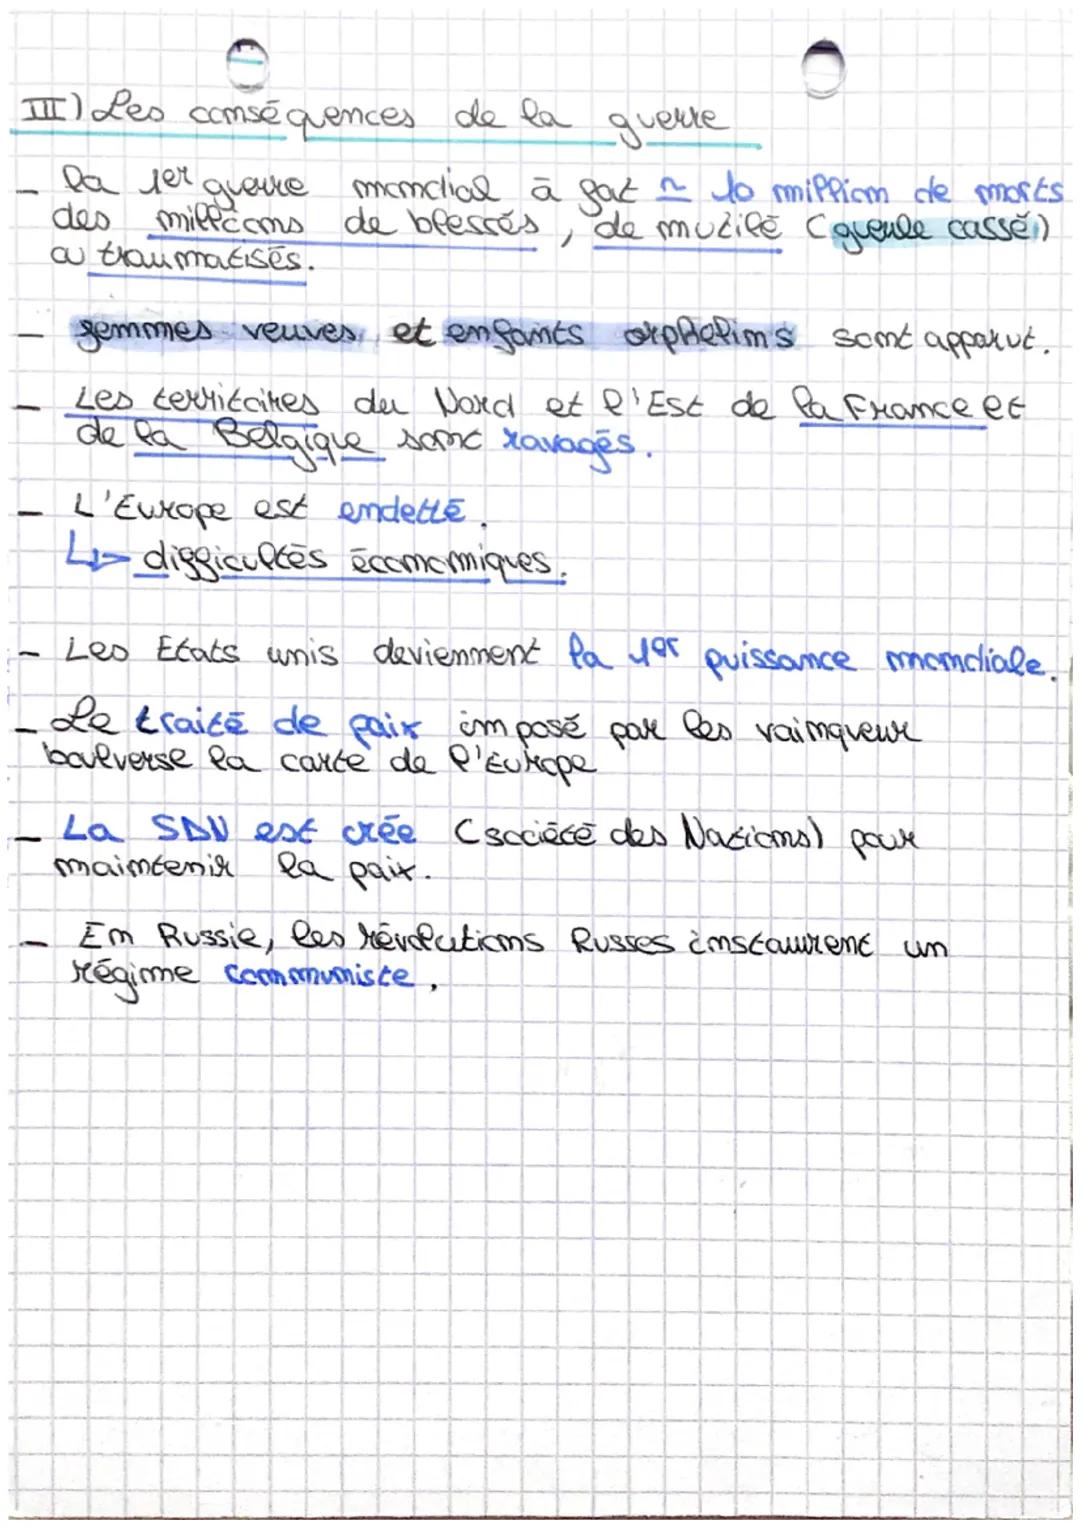 III) Les conséquences de la guerre
- la 1er guerre mondial à fat ≃ 10 million de morts
des millions de blessés, de mutilé (gueule cassé)
ou traumatisés.
- femmes veuves et enfants orphelins sont apparut.
- Les territoires du Nord et l'Est de la France et
de la Belgique sont ravagés.
- L'Europe est endetté.
↳ difficultés économiques.
- Les Etats unis deviennent la 1er puissance mondiale.
- Le traité de paix imposé par les vainqueur
boulverse la carte de l'Europe
- La SDN est crée (société des Nations) pour
maintenir la paix.
- En Russie, les révolutions Russes instaurent un
régime communiste.